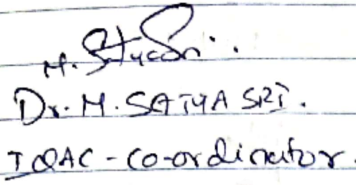 M. Satyasri.
Dr. M. SATYA SRI.
IQAC - Co-ordinator.